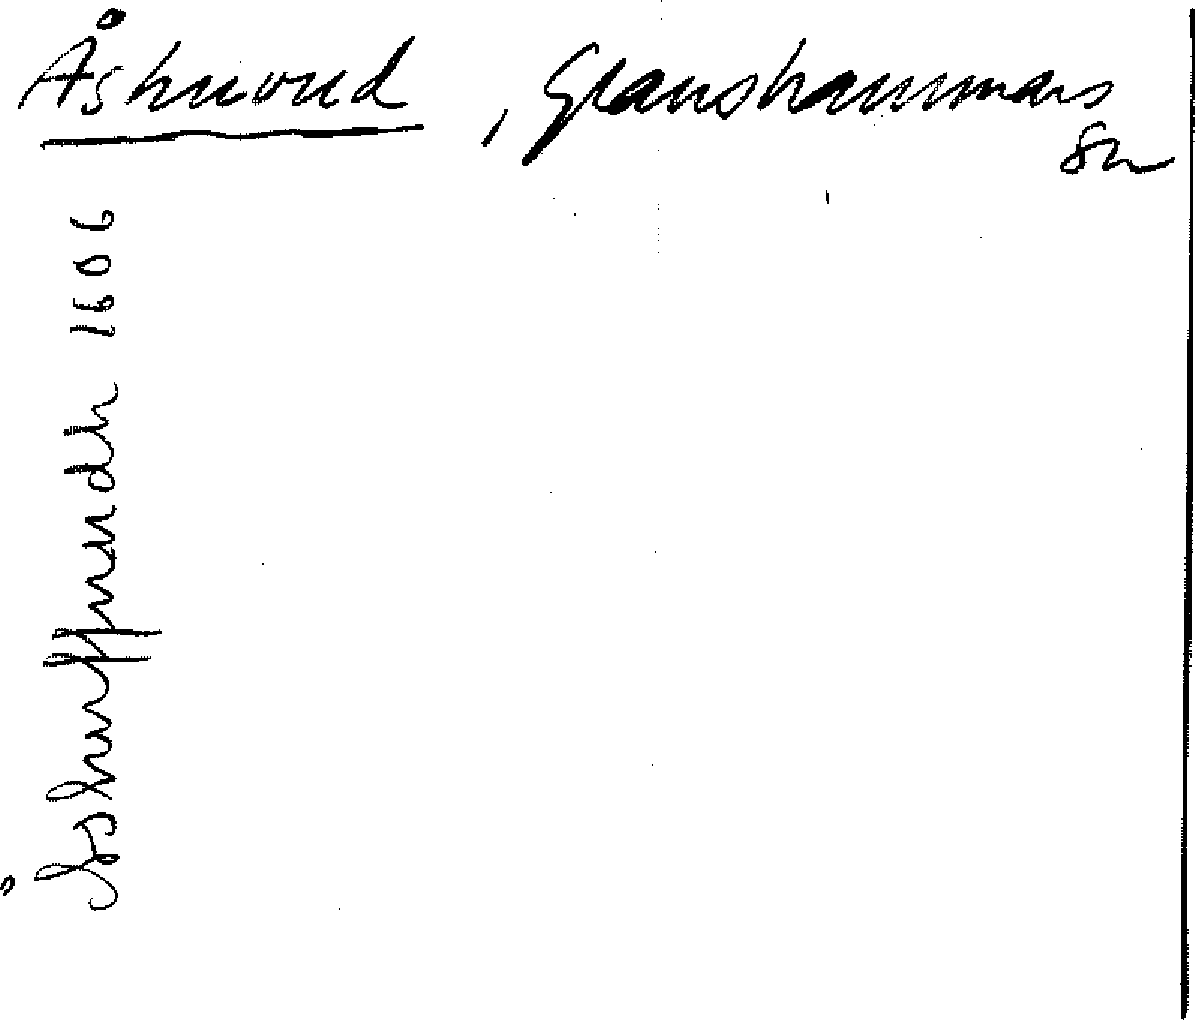 Åshuvud, Glanshammars
sn
Åshuffwudh 1606